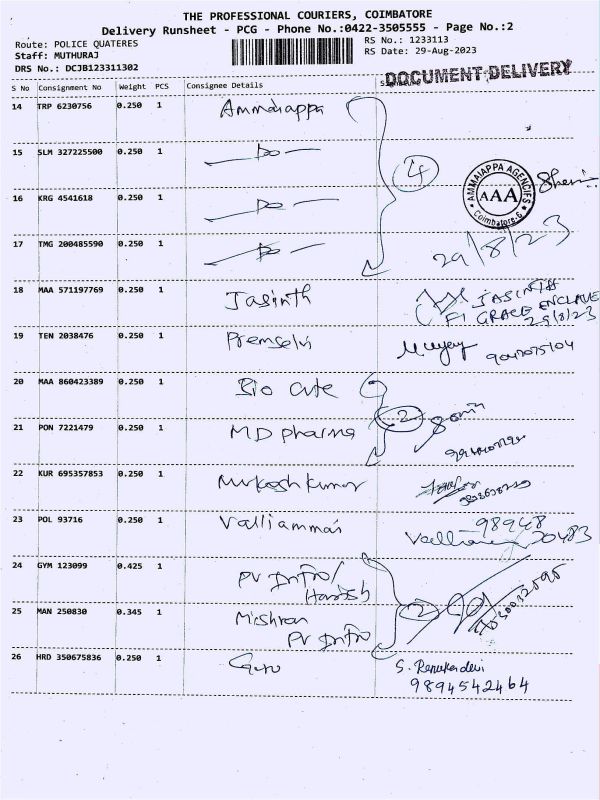 THE PROFESSIONAL COURIERS, COIMBATORE
Delivery Runsheet - PCG - Phone No.:0422-3505555 - Page No.:2
Route: POLICE QUATERES RS No.: 1233113
Staff: MUTHURAJ RS Date: 29-Aug-2023
DRS No.: DCJB123311302
DOCUMENT DELIVERY
S No Consignment No Weight PCS Consignee Details
14 TRP 6230756 0.250 1 Ammaiappa
15 SLM 327225500 0.250 1 — Do —
4
16 KRG 4541618 0.250 1 — Do —
AMMAIAPPA AGENCIES
AAA
Coimbatore-6
17 TMG 200485590 0.250 1 — Do —
29/8/23
18 MAA 571197769 0.250 1 Jasinth JASINTH
F1 GRACE ENCLAVE
29/8/23
19 TEN 2038476 0.250 1 Premselvi
20 MAA 860423389 0.250 1 Bio Cute
2
21 PON 7221479 0.250 1 MD pharma
22 KUR 695357853 0.250 1 Mukesh kumar
23 POL 93716 0.250 1 Valliammai 98948
20483
24 GYM 123099 0.425 1 PV Infro/
Harish
2
25 MAN 250830 0.345 1
PV Infro
26 HRD 350675836 0.250 1 Guru S. Renukadevi
9894542464